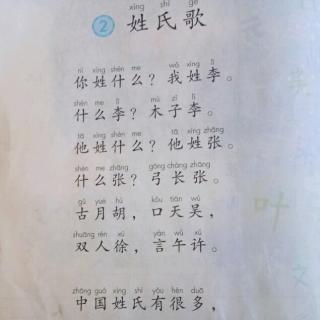 xìng shì gē
② 姓氏歌
nǐ xìng shén me wǒ xìng lǐ
你姓什么？我姓李。
shén me lǐ mù zǐ lǐ
什么李？木子李。
tā xìng shén me tā xìng zhāng
他姓什么？他姓张。
shén me zhāng gōng cháng zhāng
什么张？弓长张。
gǔ yuè hú kǒu tiān wú
古月胡，口天吴，
shuāng rén xú yán wǔ xǔ
双人徐，言午许。
zhōng guó xìng shì yǒu hěn duō
中国姓氏有很多，